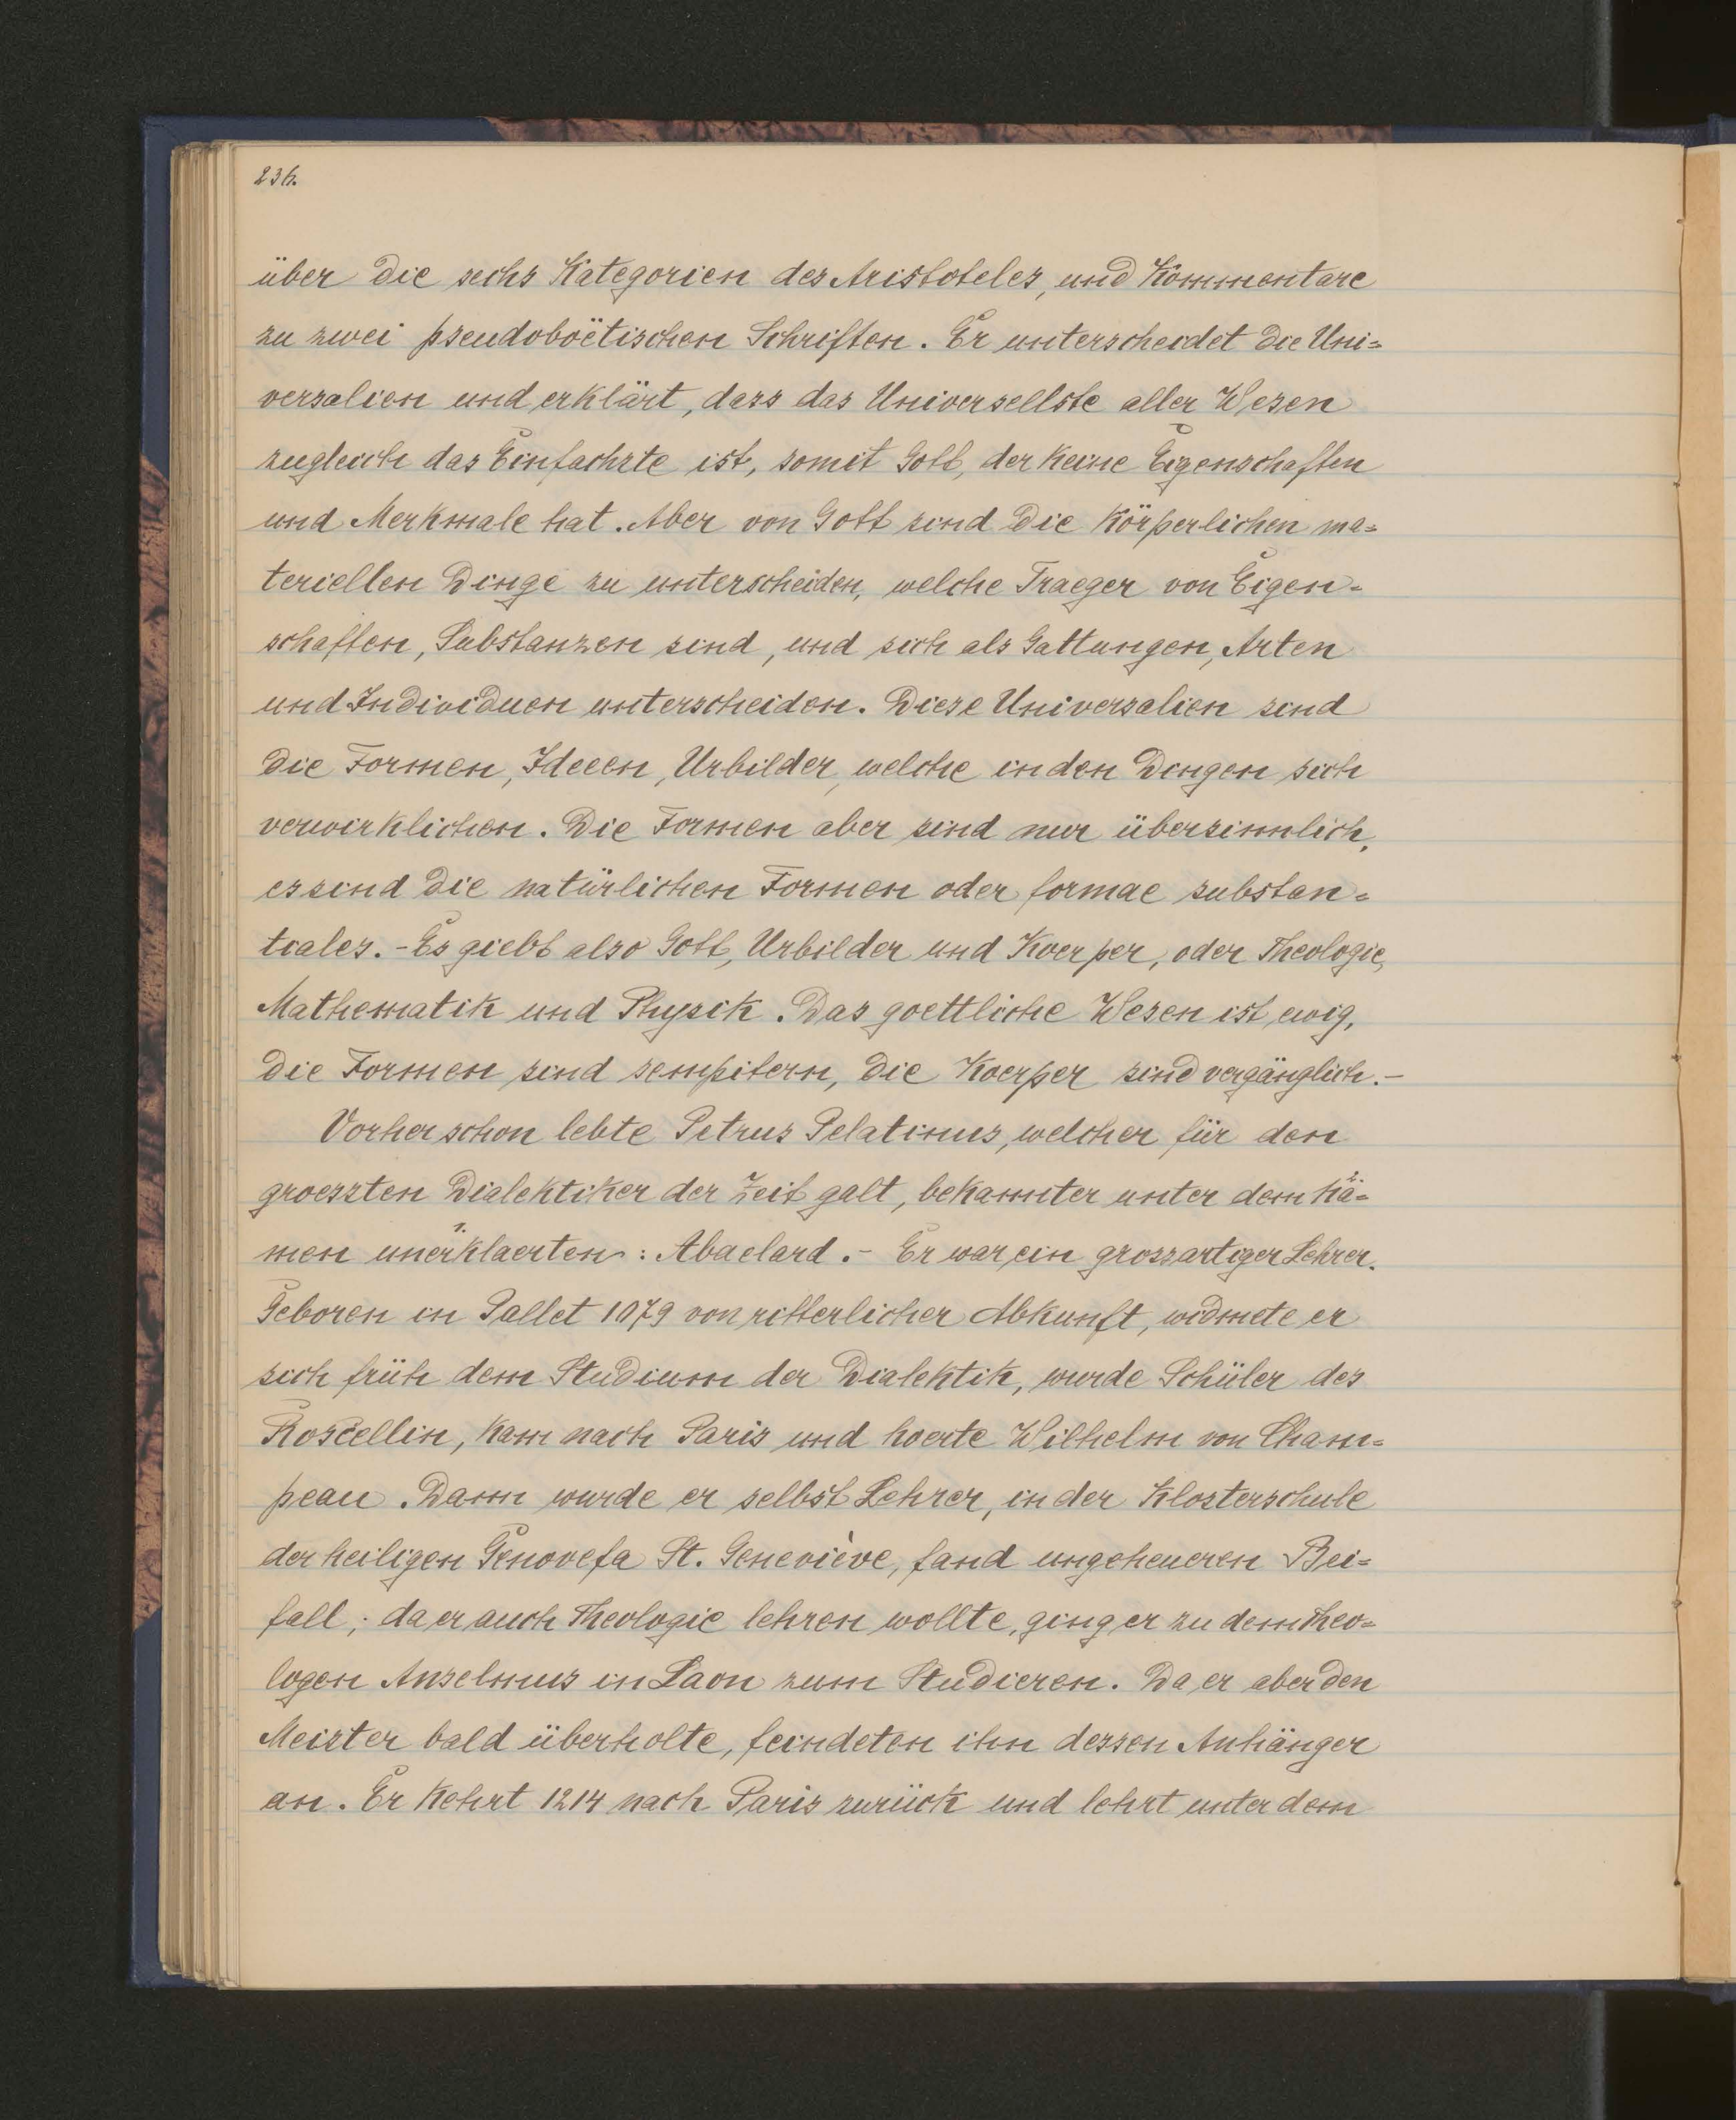 236.
über die sechs Kategorien des Aristoteles, und Kommentare
zu zwei pseudoboëtischen Schriften. Er unterscheidet die Uni=
versalien und erklärt, dass das Universellste aller Wesen
zugleich das Einfachste ist, somit Gott, der keine Eigenschaften
und Merkmale hat. Aber von Gott sind die körperlichen ma=
teriellen Dinge zu unterscheiden, welche Traeger von Eigen=
schaften, Substanzen sind, und sich als Gattungen, Arten
und Individuen unterscheiden. Diese Universalien sind
die Formen, Ideeen, Urbilder, welche in den Dingen sich
verwirklichen. Die Formen aber sind nur übersinnlich,
es sind die natürlichen Formen oder formae substan=
tiales. - Es giebt also Gott, Urbilder und Koerper, oder Theologie,
Mathematik und Physik. Das goettliche Wesen ist ewig,
die Formen sind sempitern, die Koerper sind vergänglich. -
Vorher schon lebte Petrus Pelatinus, welcher für den
groessten Dialektiker der Zeit galt, bekannter unter dem Nä=
men unerklaerten: Abaelard. - Er war ein grossartiger Lehrer.
Geboren in Pallet 1079 von ritterlicher Abkunft, widmete er
sich früh dem Studium der Dialektik, wurde Schüler des
Roscellin, kam nach Paris und hoerte Wilhelm von Cham=
peau. Dann wurde er selbst Lehrer, in der Klosterschule
der heiligen Genovefa St. Geneviève, fand ungeheueren Bei=
fall; da er auch Theologie lehren wollte, ging er zu dem Theo=
logen Anselmus in Laon zum Studieren. Da er aber den
Meister bald überholte, feindeten ihn dessen Anhänger
an. Er kehrt 1214 nach Paris zurück und lehrt unter dem